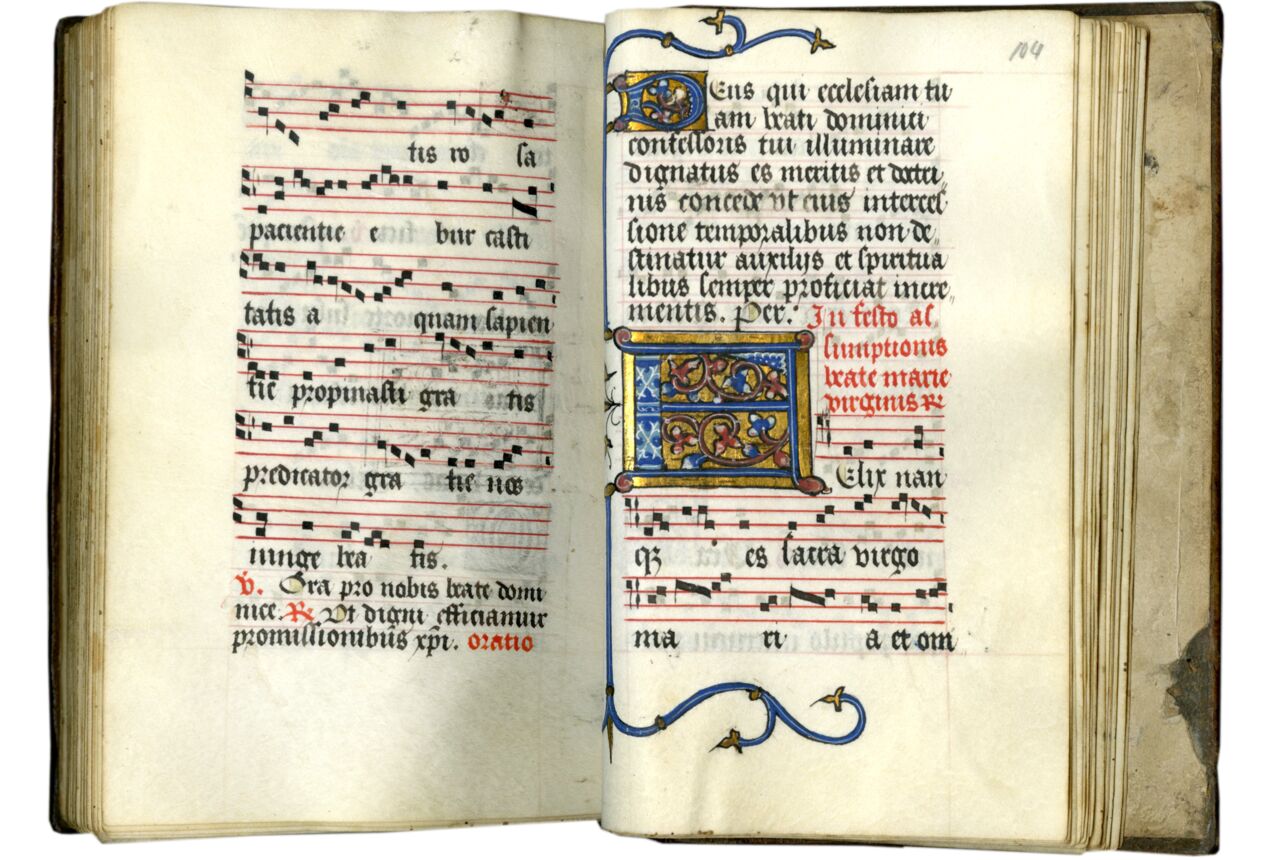 tis ro sa
pacientie ebur casti
tatis aquam sapien
tie propinasti gratis
predicator gratie nos
iunge beatis.
V. Ora pro nobis beate domi
nice. R Ut digni efficiamur
promissionibus xpi. oratio
104
Deus qui ecclesiam tu
am beati dominici
confessoris tui illuminare
dignatus es meritis et doctri
nis concede ut eius interces
sione temporalibus non de
stinatur auxilijs et spiritua
libus semper proficiat incre
mentis. Per. In festo as
sumptionis
beate marie
virginis R
Felix nan
qz es sacra virgo
maria et om